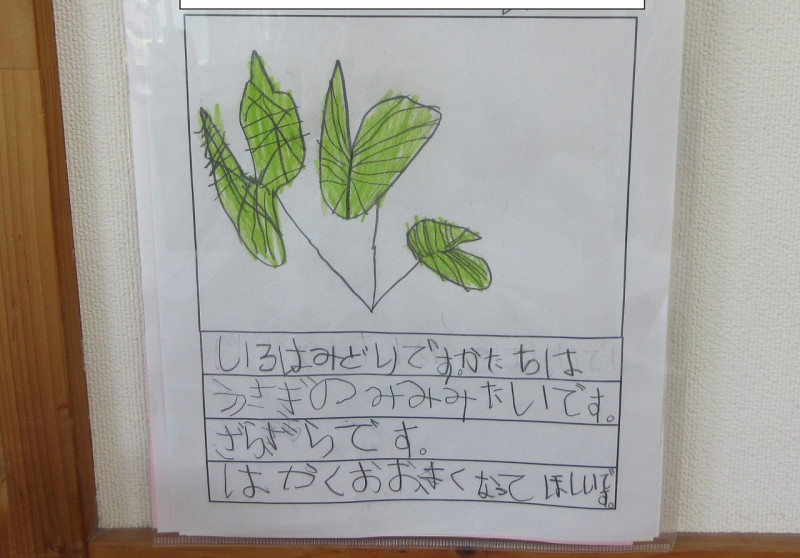 いろはみどりです。かたちは
うさぎのみみみたいです。
ざらざらです。
はがくおおきくなってほしいです。